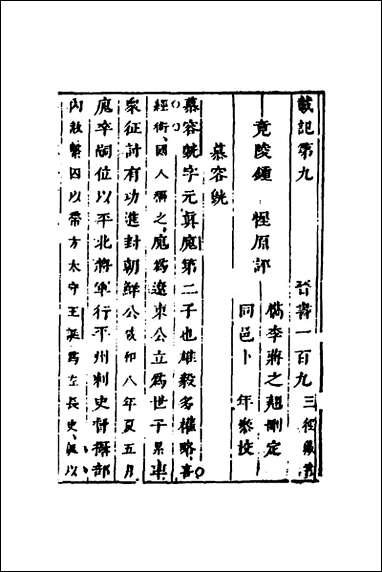 載記第九 晉書一百九
竟陵鍾惺原評 檇李蔣之翹刪定
同邑卜 年叅校
慕容皝
慕容皝字元真廆第二子也雄毅多權略喜
經術國人稱之廆爲遼東公立爲世子累率
衆征討有功進封朝鮮公咸和八年夏五月
廆卒嗣位以平北將軍行平州刺史督攝部
內赦繫囚以帶方太守王誕爲左長史以